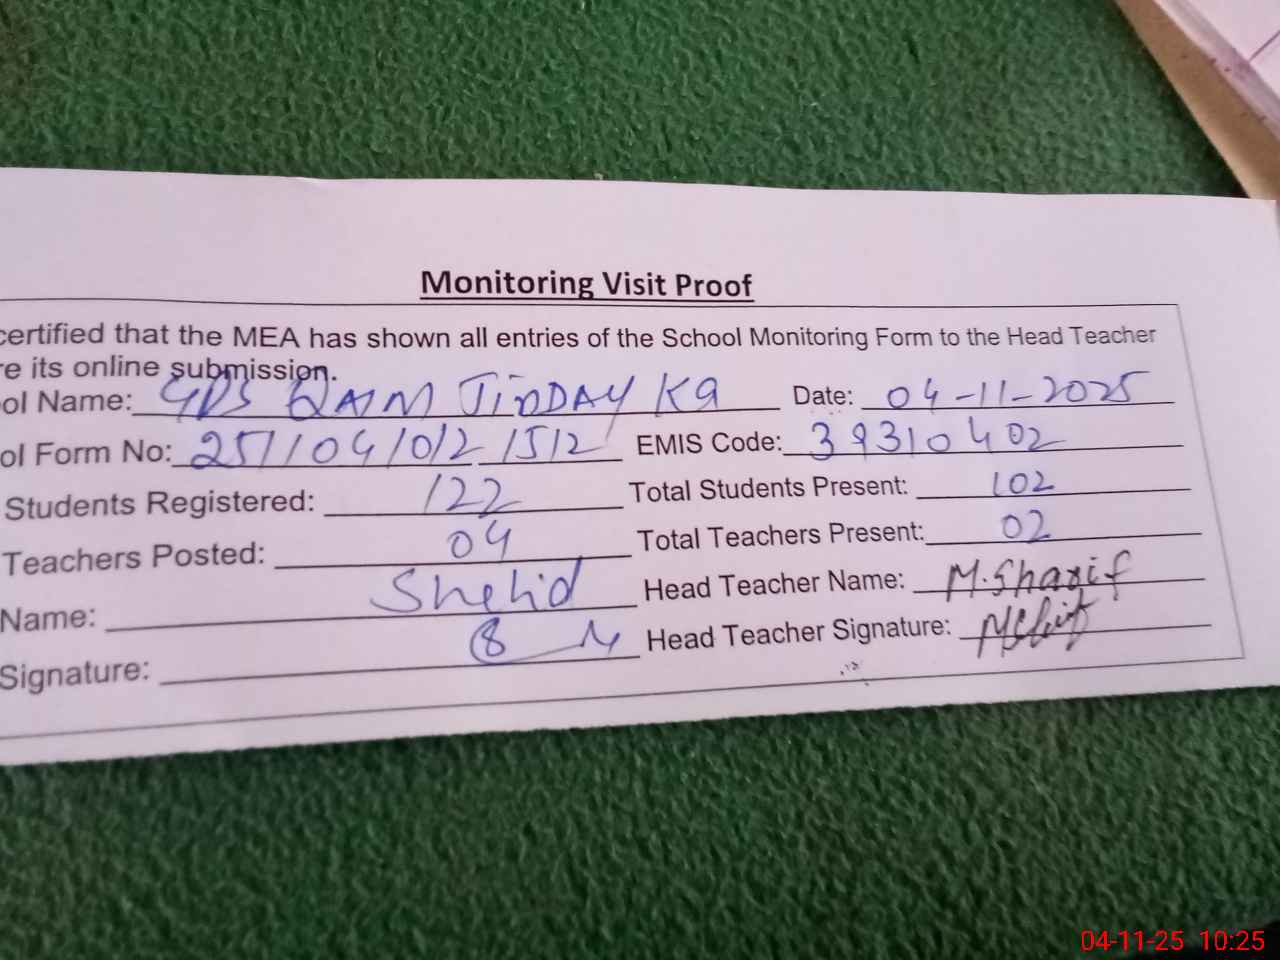 Monitoring Visit Proof
certified that the MEA has shown all entries of the School Monitoring Form to the Head Teacher
re its online submission.
ol Name: GPS QAIM JiNDAY Ka Date: 04-11-2025
ol Form No: EMIS Code: 39310402
Students Registered: 122 Total Students Present: 102
Teachers Posted: 04 Total Teachers Present: 02
Name: Shehid Head Teacher Name: M. Sharif
Signature: Head Teacher Signature:
04-11-25 10:25